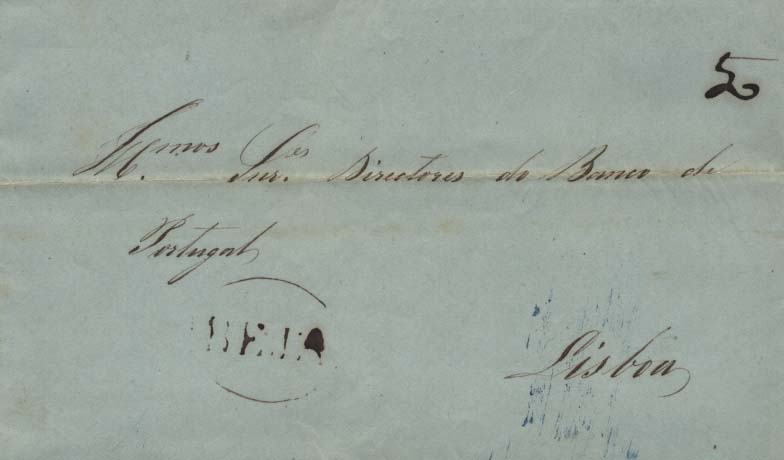 Snr.es Directores do Banco de
Portugal
BEJA
Lisboa